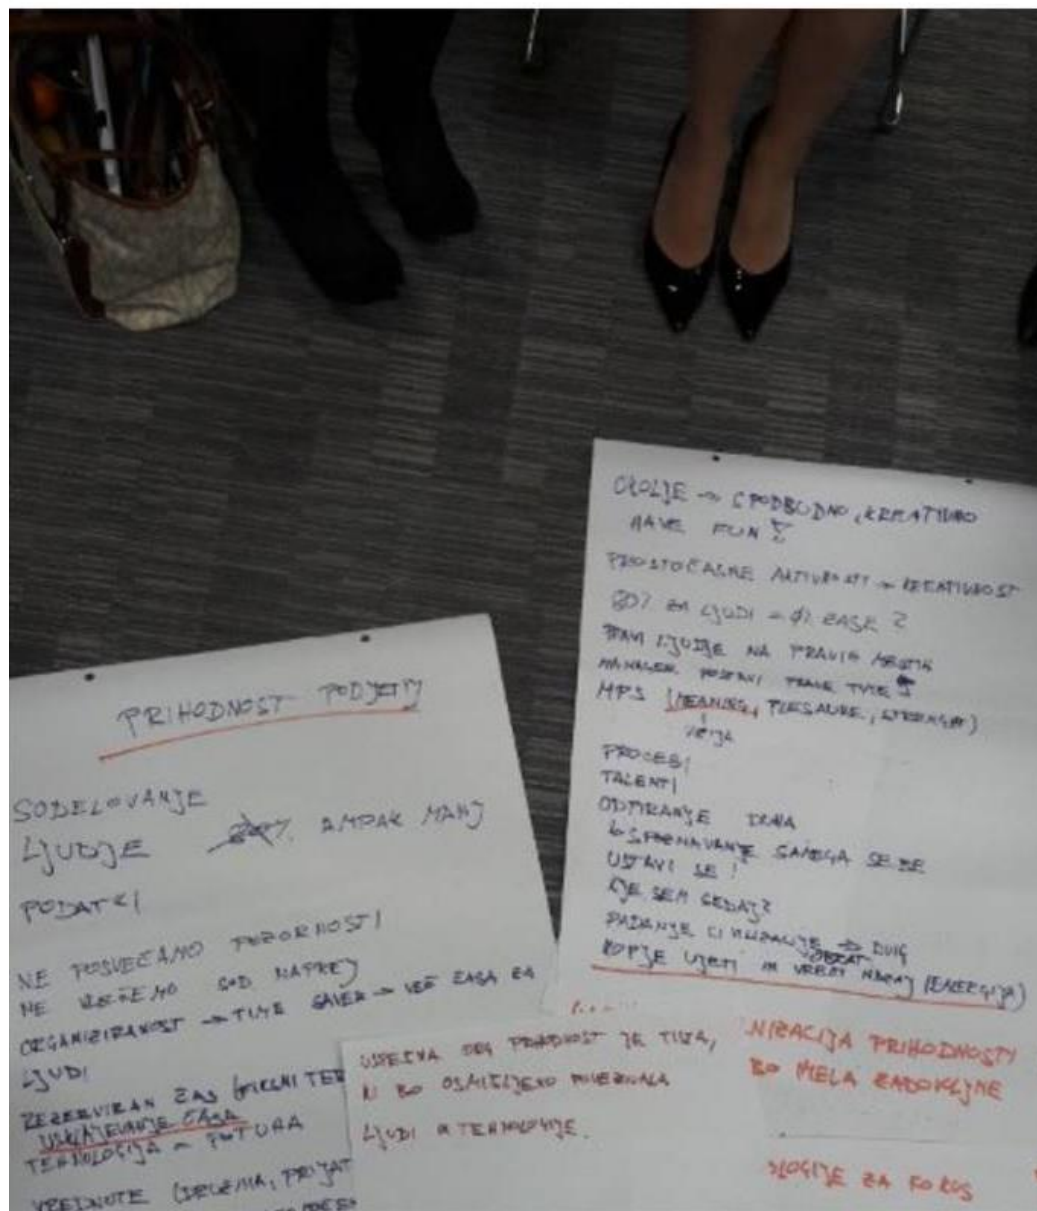 PRIHODNOST PODJETIJ
SODELOVANJE
LJUDJE AMPAK MANJ
PODATKI
NE POSVEČAMO POZORNOSTI
NE SOD NAPREJ
ORGANIZIRANOST → TIME SAVER → VEČ ČASA ZA
LJUDI
REZERVIRAN ČAS
USKLAJEVANJE ČASA
TEHNOLOGIJA =
VREDNOTE (DRUŽINA, PRIJAT
OKOLJE → SPODBUDNO, KREATIVNO
HAVE FUN !
PROSTOČASNE AKTIVNOSTI → KREATIVNOST
80% ZA LJUDI = 0% ZASE ?
PRAVI LJUDJE NA PRAVIH MESTIH
MANAGER POSTAVI PRAVE
MPS (MEANING, PLESAURE, STRENGHT)
VIZIJA
PROCESI
TALENTI
ODPIRANJE DUHA
↳ SPOZNAVANJE SAMEGA SEBE
USTAVI SE !
KJE SEM SEDAJ?
PADANJE CIVILIZACIJE → DVIG
OBRAT
KOPJE UJETI IN VREČI NAZAJ (ENERGIJA)
USPEŠNA ORG PRIHODNOST JE TISTA,
KI BO OSMIŠLJENO POVEZOVALA
LJUDI IN TEHNOLOGIJE.
NIZACIJA PRIHODNOSTI
BO MELA ZADOVOLJNE
LOGIJE ZA FOKUS